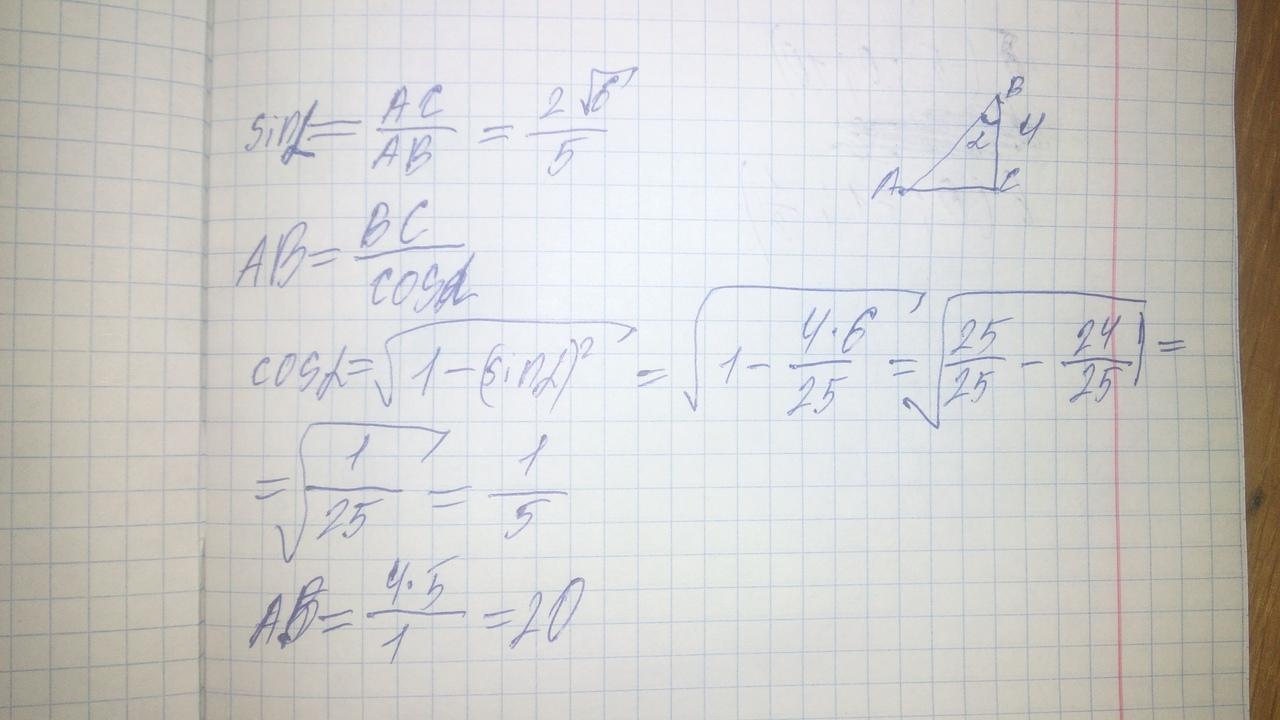 sinα = AC/AB = 2√6/5
B
α 4
A C
AB = BC/cosα
cosα = √(1 - (sinα)²) = √(1 - 4·6/25) = √(25/25 - 24/25) =
= √(1/25) = 1/5
AB = 4·5/1 = 20